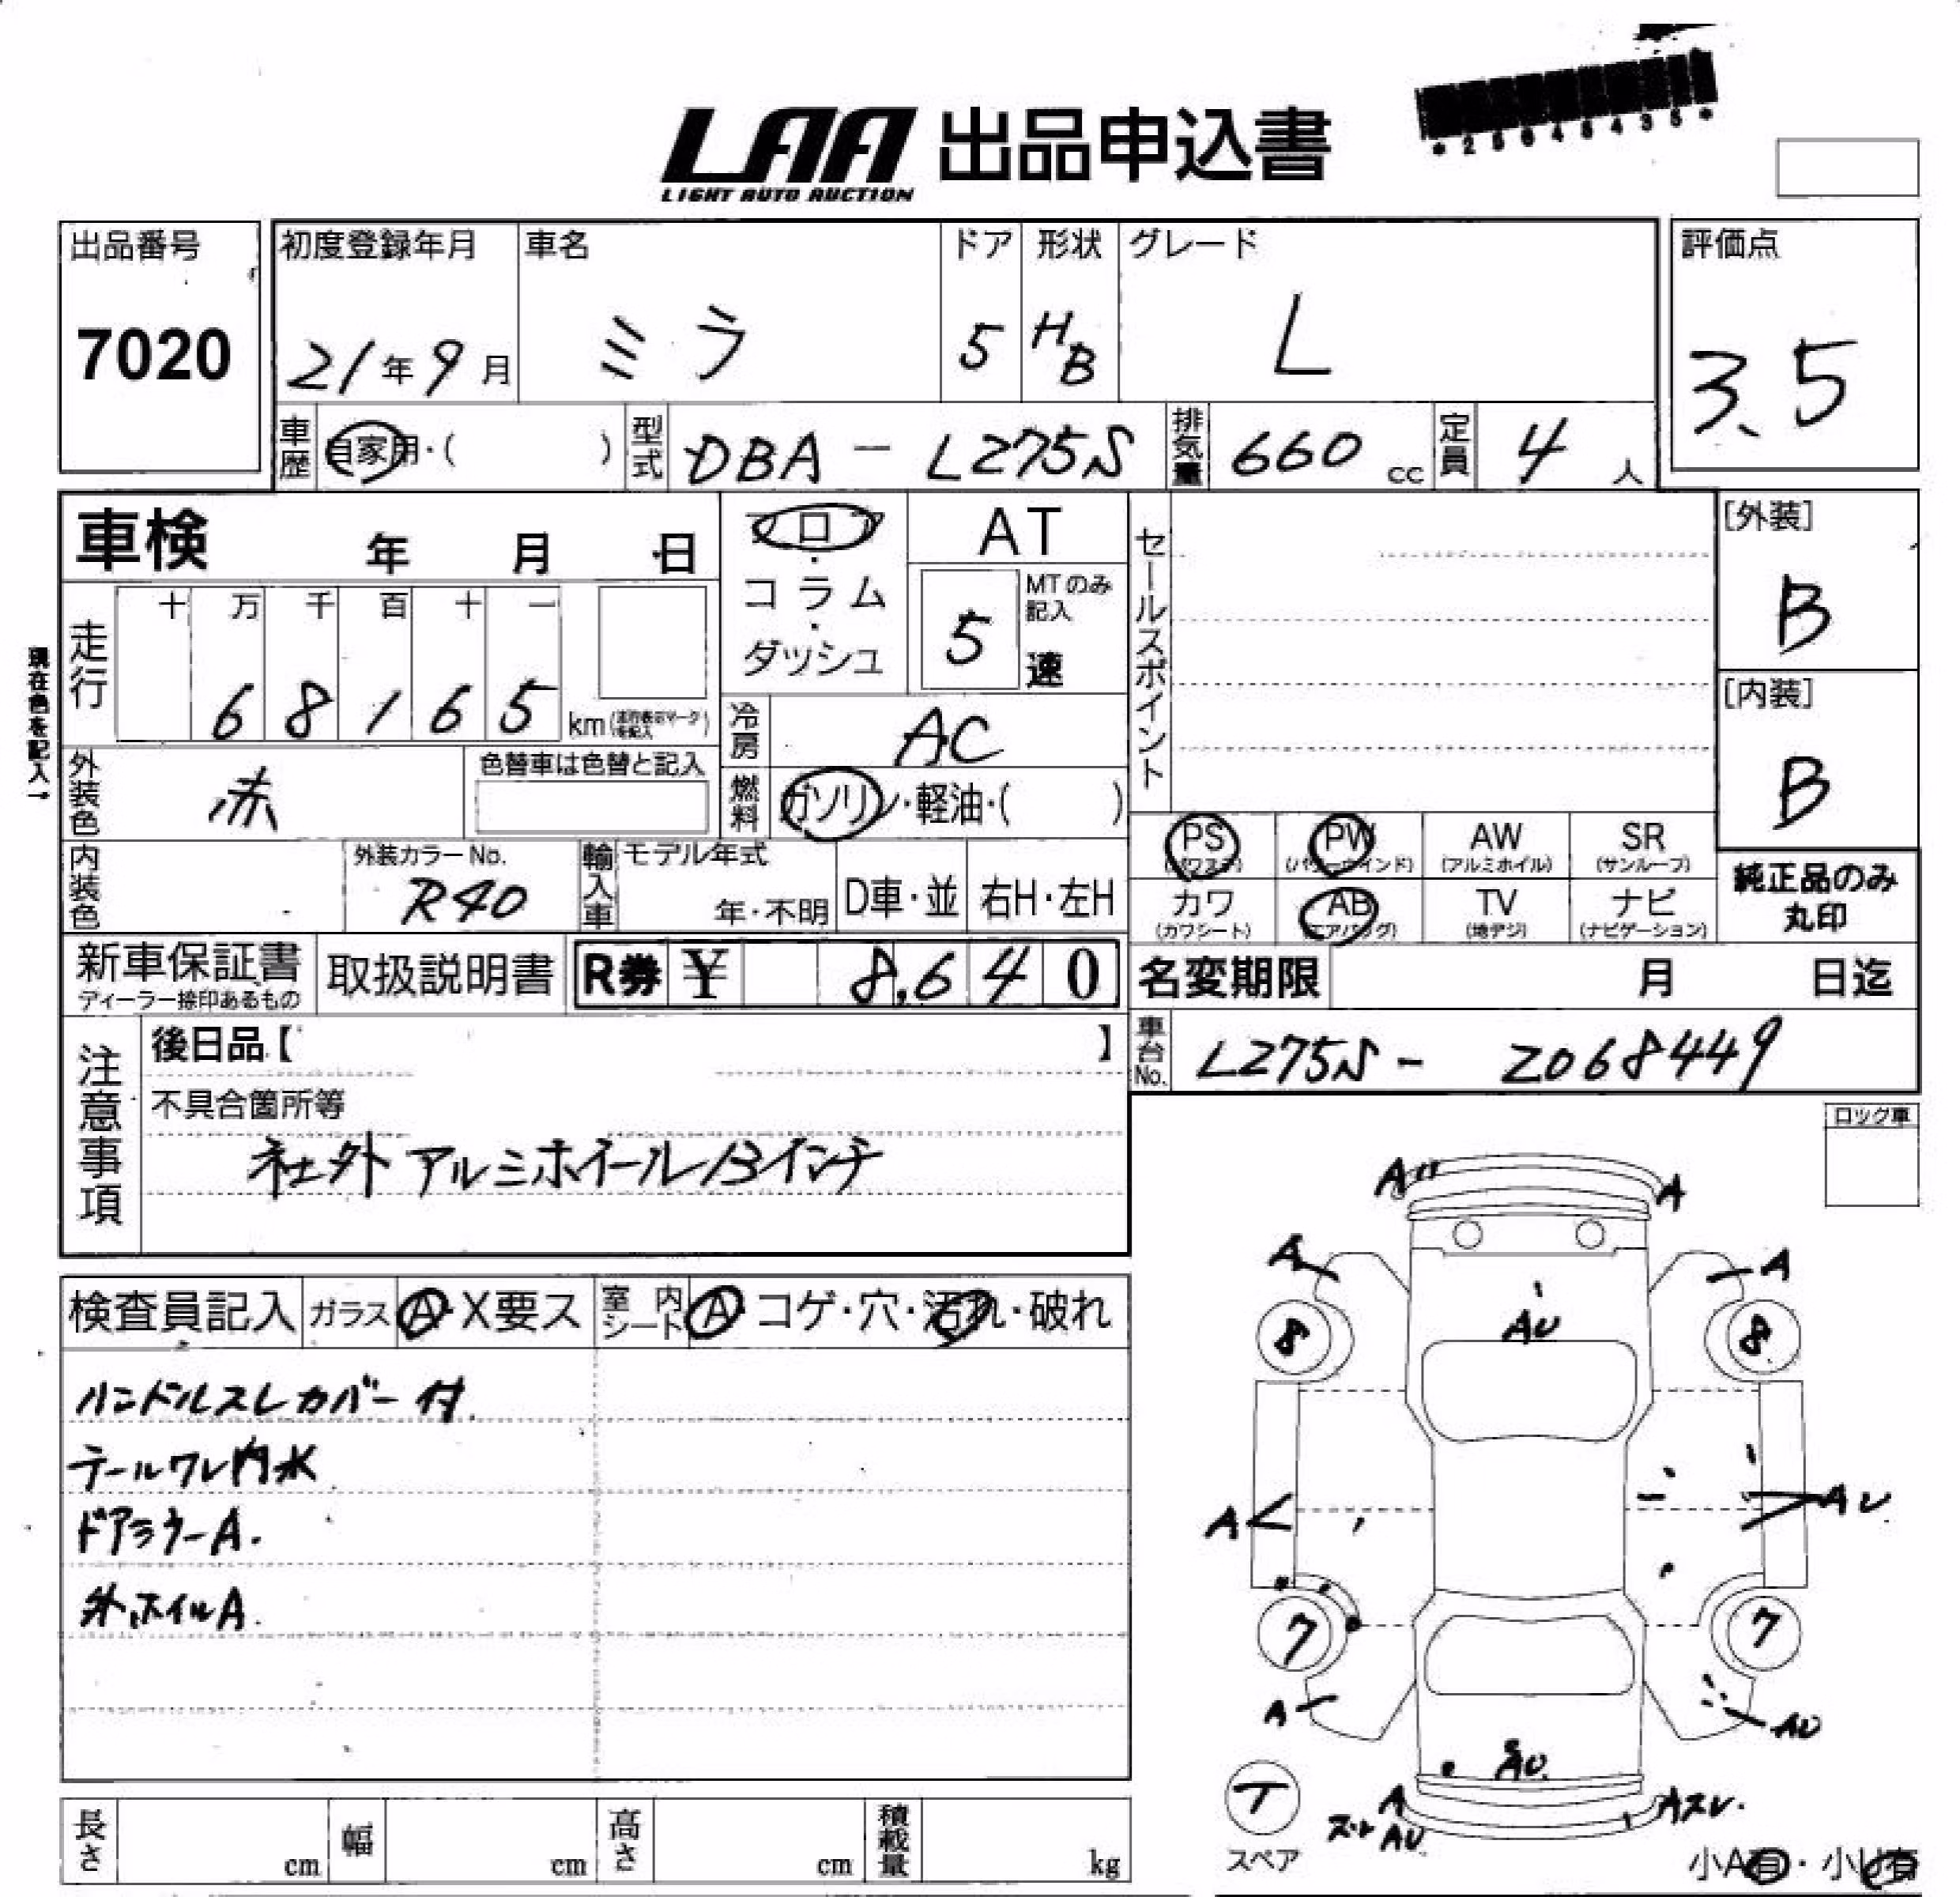 LAA 出品申込書
LIGHT AUTO AUCTION
出品番号 初度登録年月 車名 ドア 形状 グレード 評価点
7020 21年9月 ミラ 5 HB L 3.5
車歴 自家用・( ) 型式 DBA - L275S 排気量 660 cc 定員 4 人
車検 年 月 日 フロア・コラム・ダッシュ AT セールスポイント [外装]
5 MTのみ記入 速 B
走行 十 万 千 百 十 一
6 8 1 6 5 km
現在色を記入→
冷房 AC [内装]
外装色 赤 色替車は色替と記入 燃料 ガソリン・軽油・( ) B
PS AB PW AW SR
(パワステ) (パワーウインド) (アルミホイル) (サンルーフ)
内装色 外装カラーNo. R40 輸入車 モデル年式 年・不明 D車・並 右H・左H
カワ AB TV ナビ
(カワシート) (エアバッグ) (地デジ) (ナビゲーション)
純正品のみ
丸印
新車保証書 取扱説明書 R券 ¥ 8,640 名変期限 月 日迄
ディーラー捺印あるもの
注意事項 後日品【 】 車台No. L275S - Z068449
不具合箇所等
社外アルミホイール13インチ
ロック車
検査員記入 ガラス A・X要ス 室内シート A・コゲ・穴・汚れ・破れ
ハンドルスレ カバー付
テールワレ内水
ドアミラーA.
外ホイルA.
A A
A A
8 AU 8
A AU
7 7
A AU
AU
T A Aスレ
スレ AU
スペア 小A有・小U有
長さ cm 幅 cm 高さ cm 積載量 kg